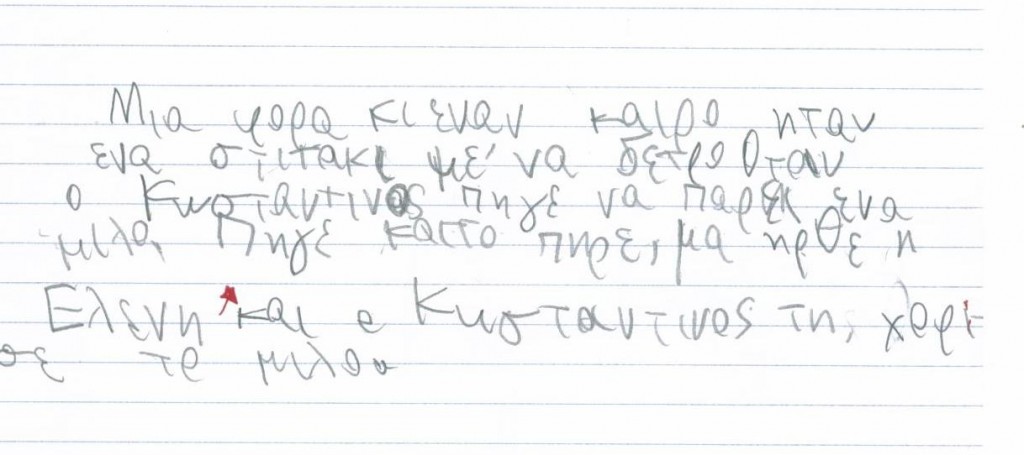 Μια φορα κι εναν καιρο ηταν
ενα σπιτακι με' να δετρο Οταν
ο Κωσταντινος πηγε να παρει ενα
μιλο, Πηγε καιτο πηρε, μα ηρθε η
Ελενη και ο Κωσταντινος τη, χαρι
σε το μιλο.